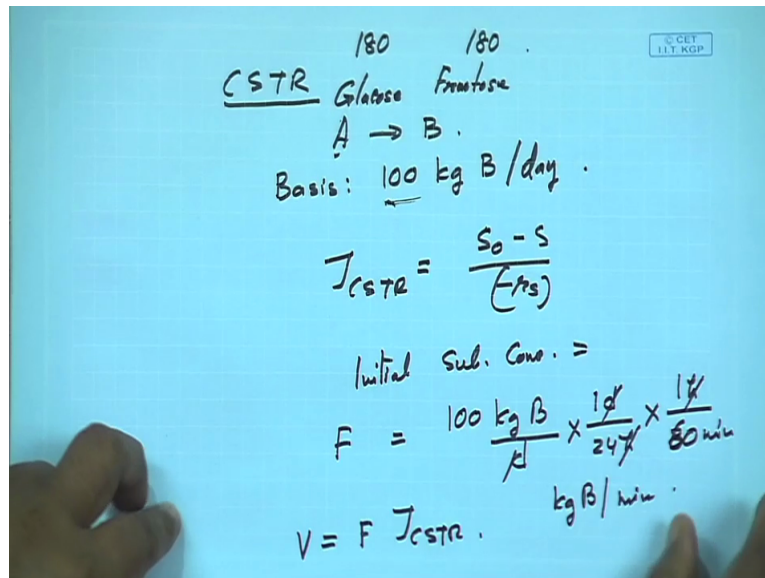 180 180 .
© CET
I.I.T. KGP
CSTR Glucose Fructose
A → B .
Basis : 100 kg B / day .
τCSTR = S0 - S / (-rs)
Initial Sub. Conc. =
F = 100 kg B / d × 1d / 24h × 1h / 60 min
kg B / min .
V = F τCSTR .